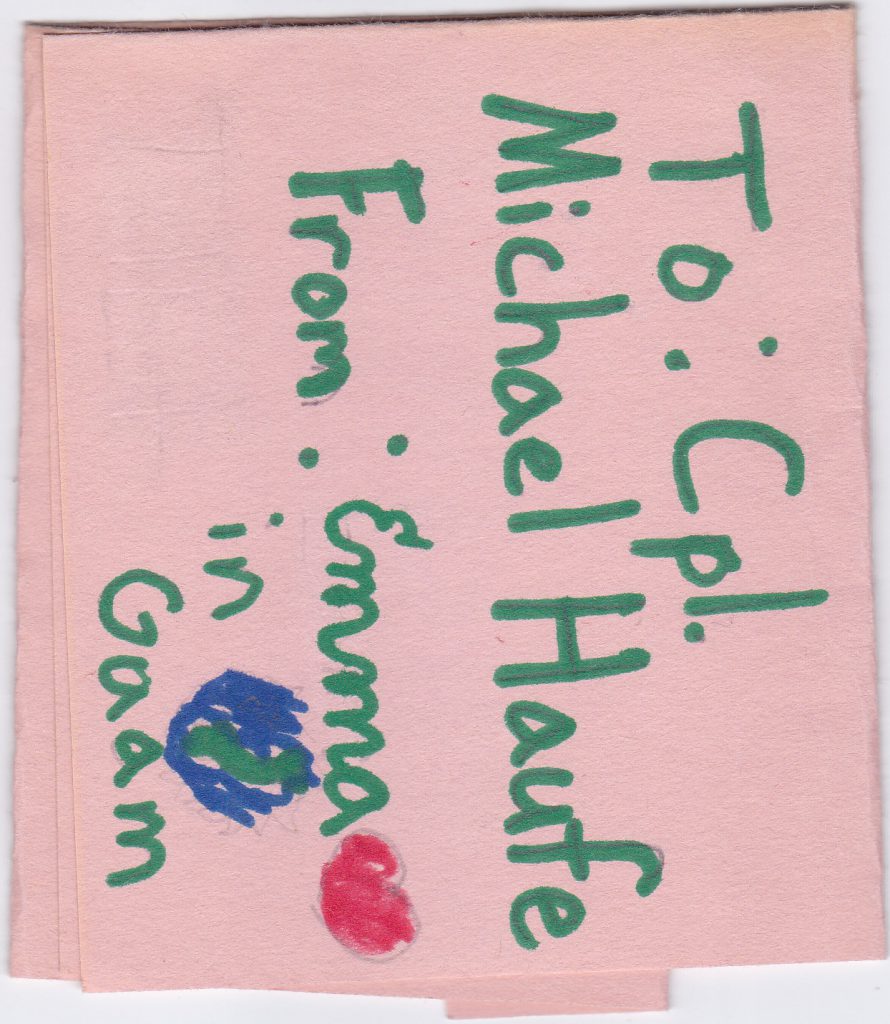 To: Cpl.
Michael Haufe
From: Emma
in
Gaam